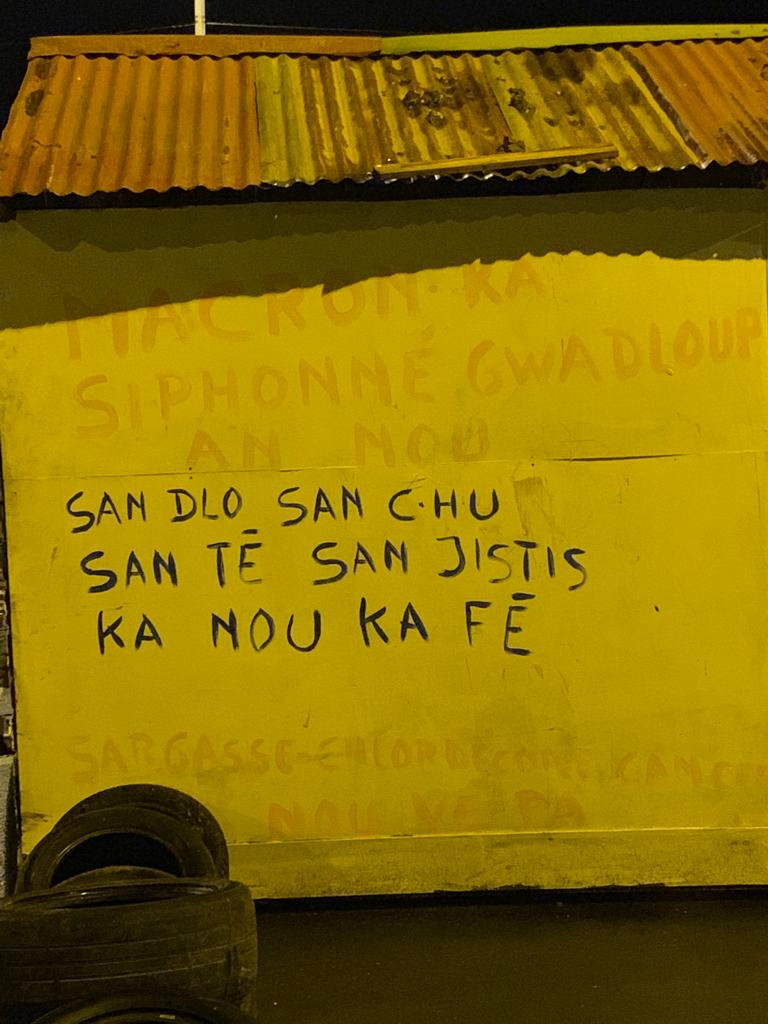 MACRON KA
SIPHONNÉ GWADLOUP
AN NOU
SAN DLO SAN C.H.U
SAN TĒ SAN JISTIS
KA NOU KA FĒ
SARGASSE-CHLORDECONE CANCER
NOU VÉ PA